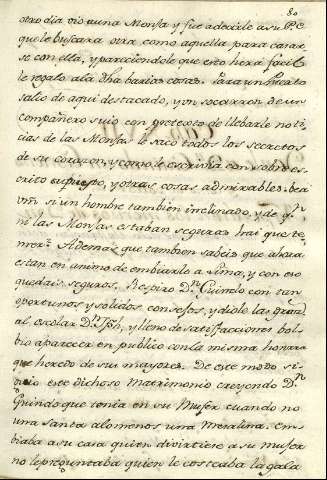 80
otro dia vio a una Monja y fue a decirle a su P.C.
que le buscara otra como aquella para casar
se con ella, y pareciendole que esto hera facil
le regalo a la dha barias cosas. Para un Puerto
salio de aqui destacado, y on socorron de un
compañero suio con pretexto de llebarle noti
cias de las Monjas le sacó todos los secretos
de su corazon, y como le escrivia con sobre es
crito supuesto, y otras cosas admirables. bea
vm si un hombre tambien inclinado, y de qn
ni las Monjas estaban seguras hai que te
mer? Ademas que tambien sabeis que ahora
estan en animo de embiarlo a Lima, y con eso
quedais seguros. Respiró Dn Guindo con tan
oportunos y solidos consejos, y diole las gracs
al escolar Dn Jph, y lleno de satisfacciones bol
bio aparecer en publico con la misma honrra
que heredo de sus mayores. De este modo si
guio este dichoso Matrimonio creyendo Dn
Guindo que tenia en su Muger cuando no
una santa alomenos una Mesalina. Em
biaba a su casa quien divirtiese a su muger
no le preguntaba quien le costeaba la gala